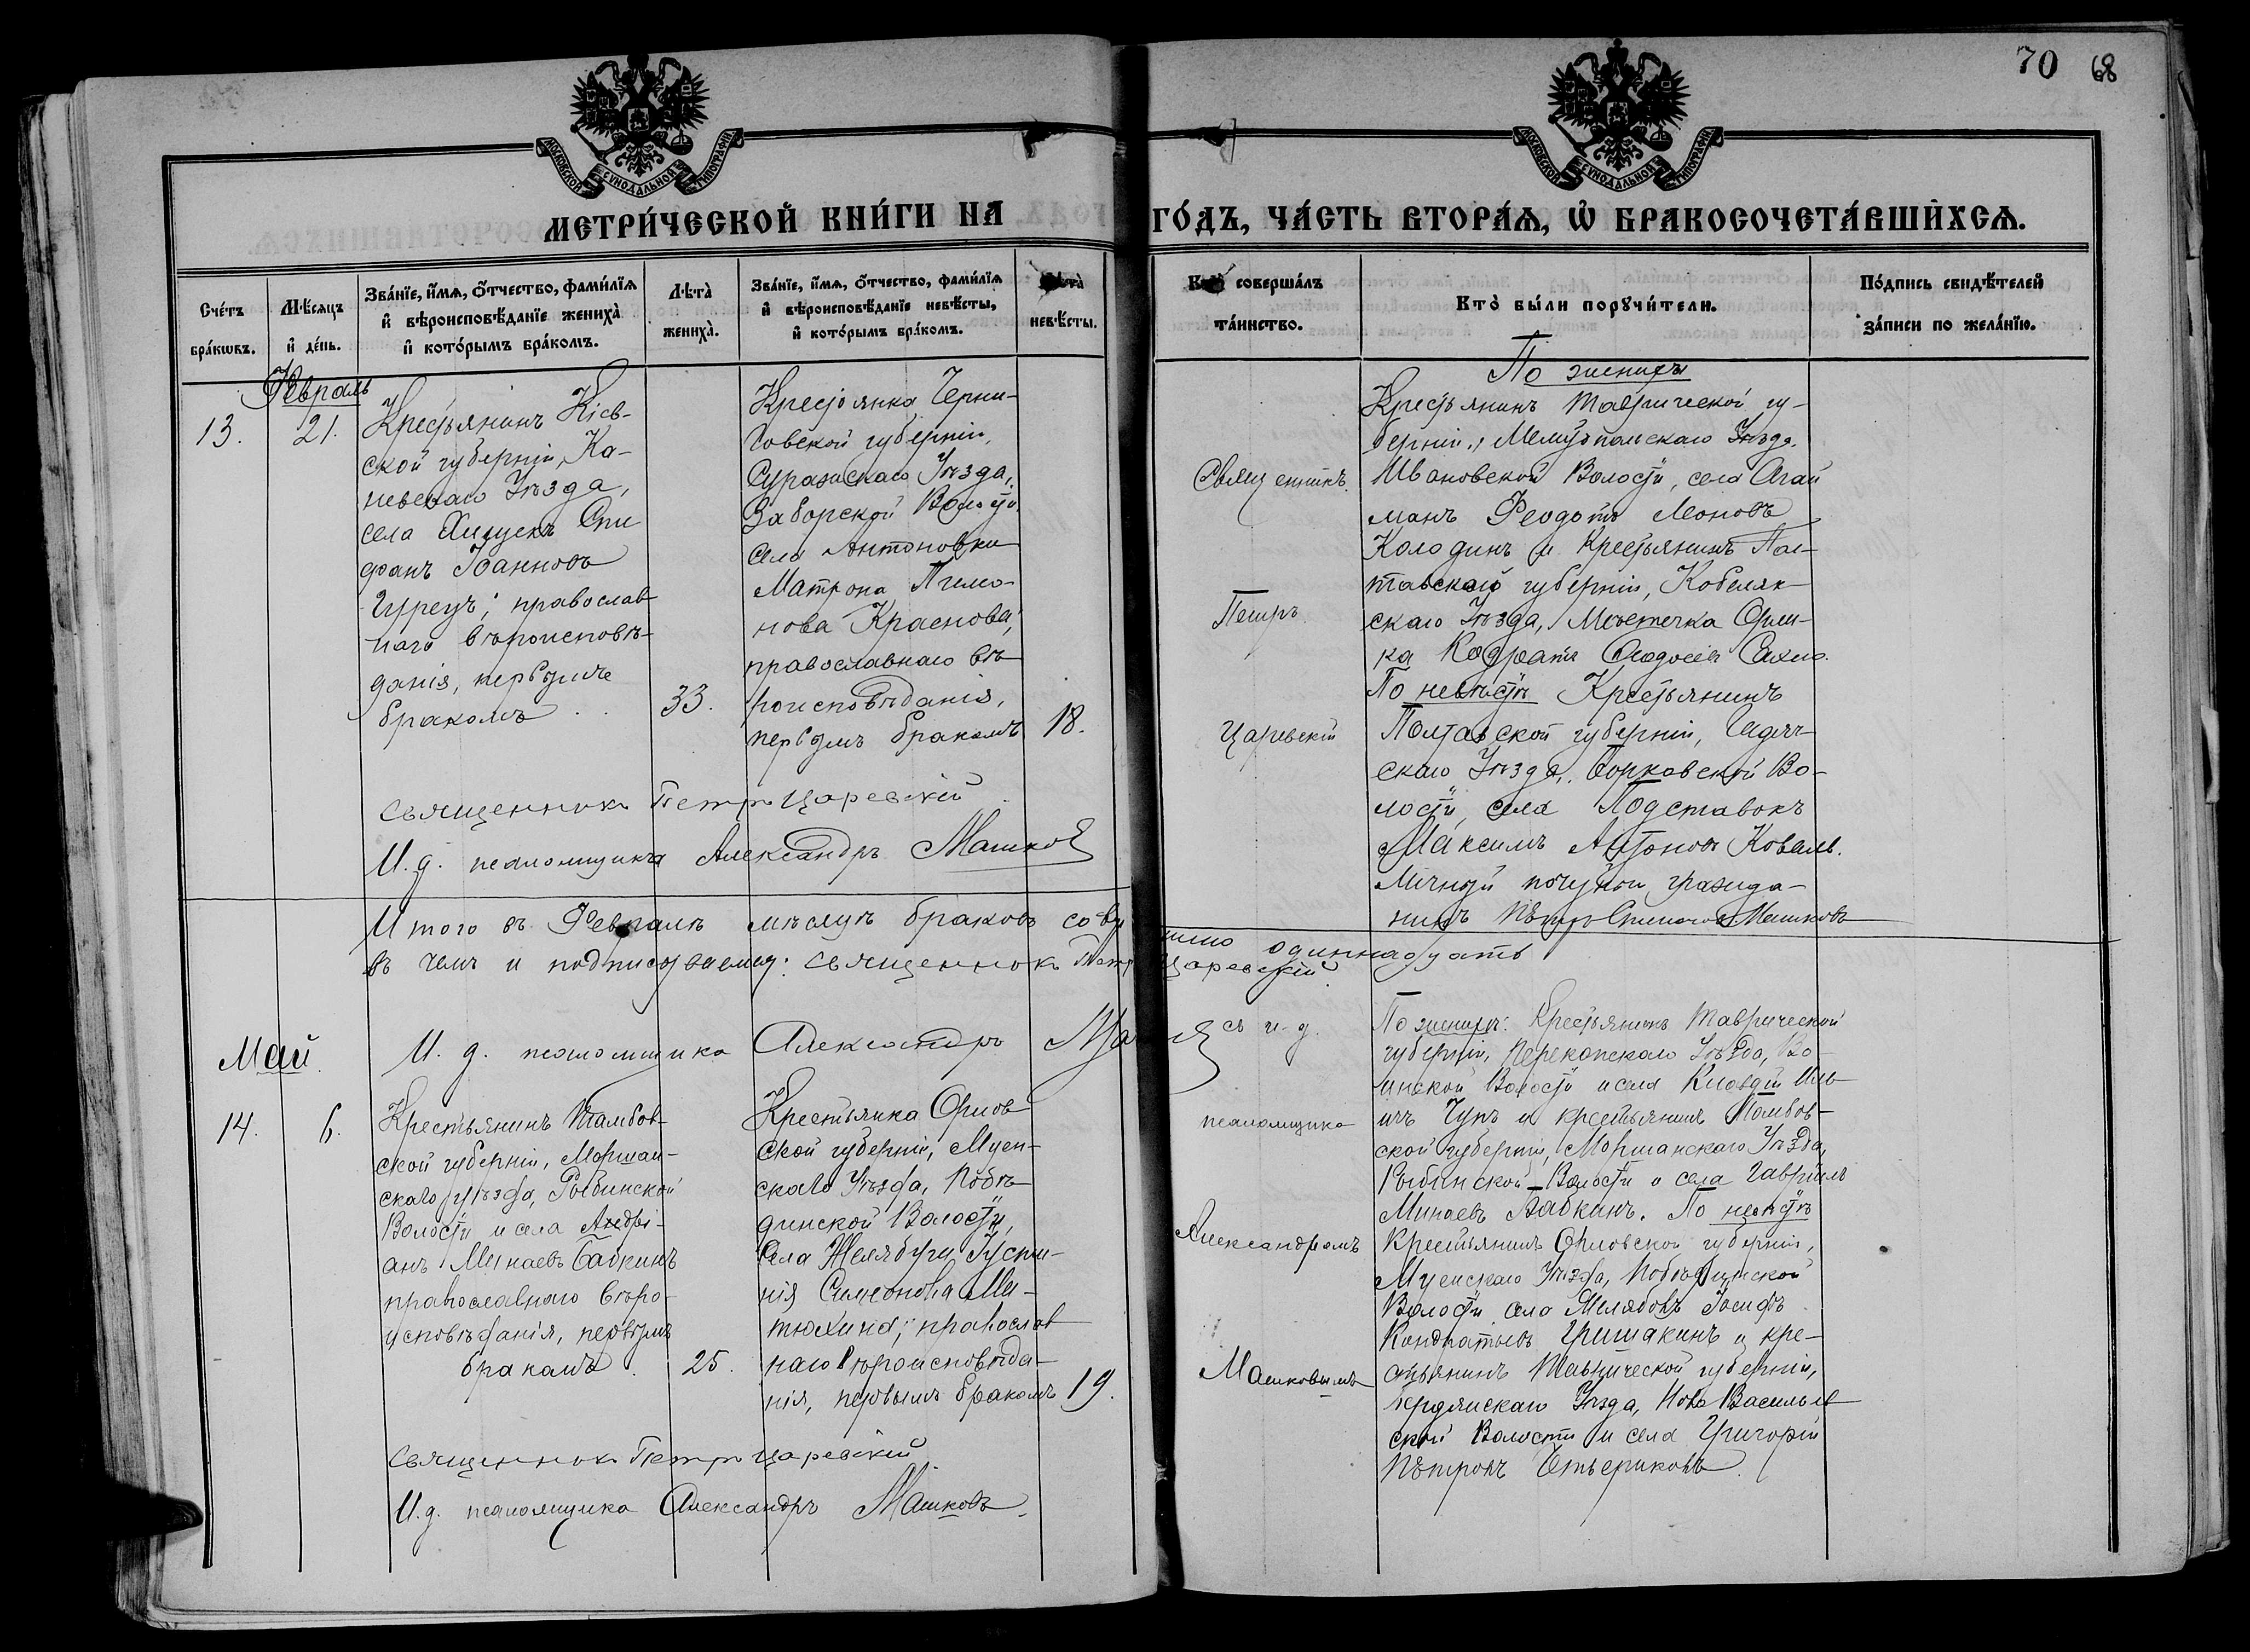 70 68
МОСКОВСКОЙ СѴНОДАЛЬНОЙ ТИПОГРАФІИ
МОСКОВСКОЙ СѴНОДАЛЬНОЙ ТИПОГРАФІИ
МЕТРИ́ЧЕСКОЙ КНИ́ГИ НА
ГО́ДЪ, ЧА́СТЬ ВТОРА́Ѧ, Ѡ БРАКОСОЧЕТА́ВШИХСѦ.
Сче́тъ бра́кѡвъ.
Мѣ́сѧцъ и де́нь.
Зва́нїе, и́мѧ, о́тчество, фами́лїѧ
и вѣроисповѣ́данїе жениха̀
и кото́рымъ бра́комъ.
Лѣта̀ жениха̀.
Зва́нїе, и́мѧ, о́тчество, фами́лїѧ
и вѣроисповѣ́данїе невѣ́сты,
и кото́рымъ бра́комъ.
невѣ́сты.
совершалъ
та́инство.
Кто̀ бы́ли порꙋчи́тели.
По́дпись свидѣ́телей
за́писи по жела́нїю.
Февраль
13.
21.
Крестьянинъ Кіев-
ской губерніи, Ка-
невскаго Уѣзда,
села Спи
фанъ Іоанновъ
православ-
наго вѣроисповѣ-
данія, первымъ
бракомъ
33.
Крестьянка Черни-
говской губерніи,
Суражскаго Уѣзда,
Заборской Волости
села Антоновки
Матрона Пимо-
нова Краснова;
православнаго вѣ-
роисповѣданія,
первымъ бракомъ
18.
Священникъ
Петръ
Царевскій
По женихѣ
Крестьянинъ Таврической гу-
берніи, Мелитопольскаго Уѣзда,
Ивановской Волости, села Агай
манъ Феодотъ Леоновъ
Колодинъ и Крестьянинъ Пол-
тавской губерніи, Кобеляк-
скаго Уѣзда, Мѣстечка Орли-
ка Кодратъ Сахно.
По невѣстѣ Крестьянинъ
Полтавской губерніи, Гадяч-
скаго Уѣзда, Борковской Во-
лости, села Подставокъ
Максимъ Антоновъ Коваль.
Личный почетный гражда-
нинъ Петръ Машковъ
Священникъ Петръ Царевскій
И. д. псаломщика Александръ Машковъ
Итого въ Февралѣ мѣсяцѣ браковъ совершено одиннадцать
въ чемъ и подписуемся: Священникъ Петръ Царевскій
И. д. псаломщика Александръ
Май
14.
6.
Крестьянинъ Тамбов-
ской губерніи, Моршан-
скаго уѣзда, Рыбинской
Волости и села Андрі-
анъ Минаевъ Бабкинъ
православнаго вѣро-
исповѣданія, первымъ
бракомъ
25.
Крестьянка Орлов-
ской губерніи, Мцен-
скаго Уѣзда, Побѣ-
динской Волости,
села Желябуги Іусти-
нія Симеонова Ми-
тюхина; православ-
наго вѣроисповѣда-
нія, первымъ бракомъ
19.
съ и. д.
псаломщика
Александромъ
Машковымъ
По женихѣ: Крестьянинъ Таврической
губерніи, Перекопскаго Уѣзда, Во-
инской Волости и села Клавдій Иль-
ичъ Чупъ и крестьянинъ Тамбов-
ской губерніи, Моршанскаго Уѣзда,
Рыбинской Волости и села Гавріилъ
Минаевъ Бабкинъ. По невѣстѣ
Крестьянинъ Орловской губерніи,
Мценскаго Уѣзда, Побѣдинской
Волости села Іосифъ
Кондратьевъ Гришакинъ и кре-
стьянинъ Таврической губерніи,
Бердянскаго Уѣзда, Ново Васильев-
ской Волости и села Григорій
Петровъ Четвериковъ.
Священникъ Петръ Царевскій
И. д. псаломщика Александръ Машковъ